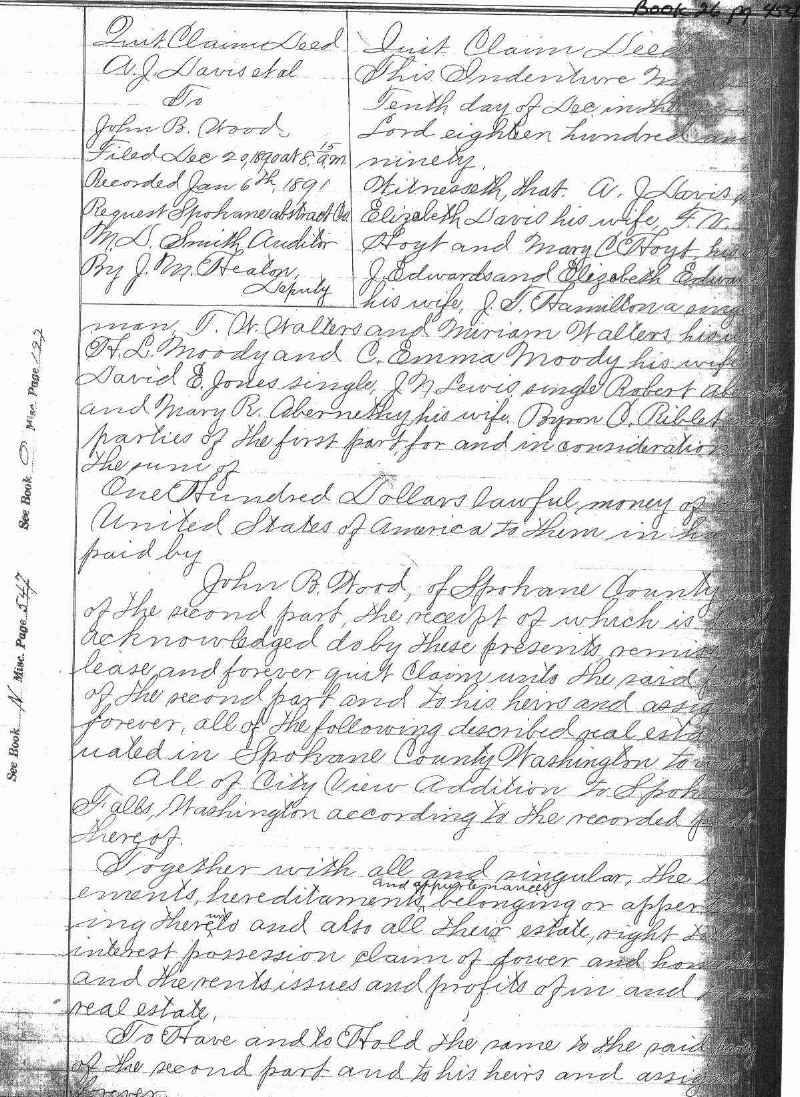 Book 26 pg 454
Quit Claim Deed
A. J. Davis et al
To
John B. Wood,
Filed Dec 20, 1890 at 8 15 am
Recorded Jan 6th, 1891
Request Spokane abstract Co
M. D. Smith Auditor
By J. M. Heaton,
Deputy
Quit Claim Deed
This Indenture
Tenth day of Dec, in the
Lord eighteen hundred and
ninety.
Witnesseth, that A. J Davis and
Elizabeth Davis his wife, F. V.
Hoyt and Mary C Hoyt, his wife
J. Edwards and Elizabeth Edwards
his wife, J. T. Hamilton a single
man, T. W. Walters and Miriam Walters, his wife
H. L. Moody and C. Emma Moody his wife
David E. Jones single, J. N Lewis, single Robert Abernethy
and Mary R. Abernethy, his wife. Byron C. Riblet
parties of the first part, for and in consideration of
the sum of
One Hundred Dollars lawful money of the
United States of America to them in hand
paid by
John B. Wood, of Spokane County
of the second part, the receipt of which is
acknowledged do by these presents, remise
lease, and forever quit claim unto the said
of the second part and to his heirs and assigns
forever, all of the following described real esta
uated in Spokane County Washington to wit
All of City View Addition to Spokane
Falls, Washington according to the recorded plat
thereof.
Together with all and singular, the
ements, hereditaments, and appurtenances belonging or appertain
ing thereunto and also all their estate, right
interest possession claim of dower and homestead
and the rents issues and profits of in and
real estate,
To Have and to Hold the same to the said party
of the second part and to his heirs and assigns
forever.
See Book N Misc. Page 547
See Book O Misc. Page 122